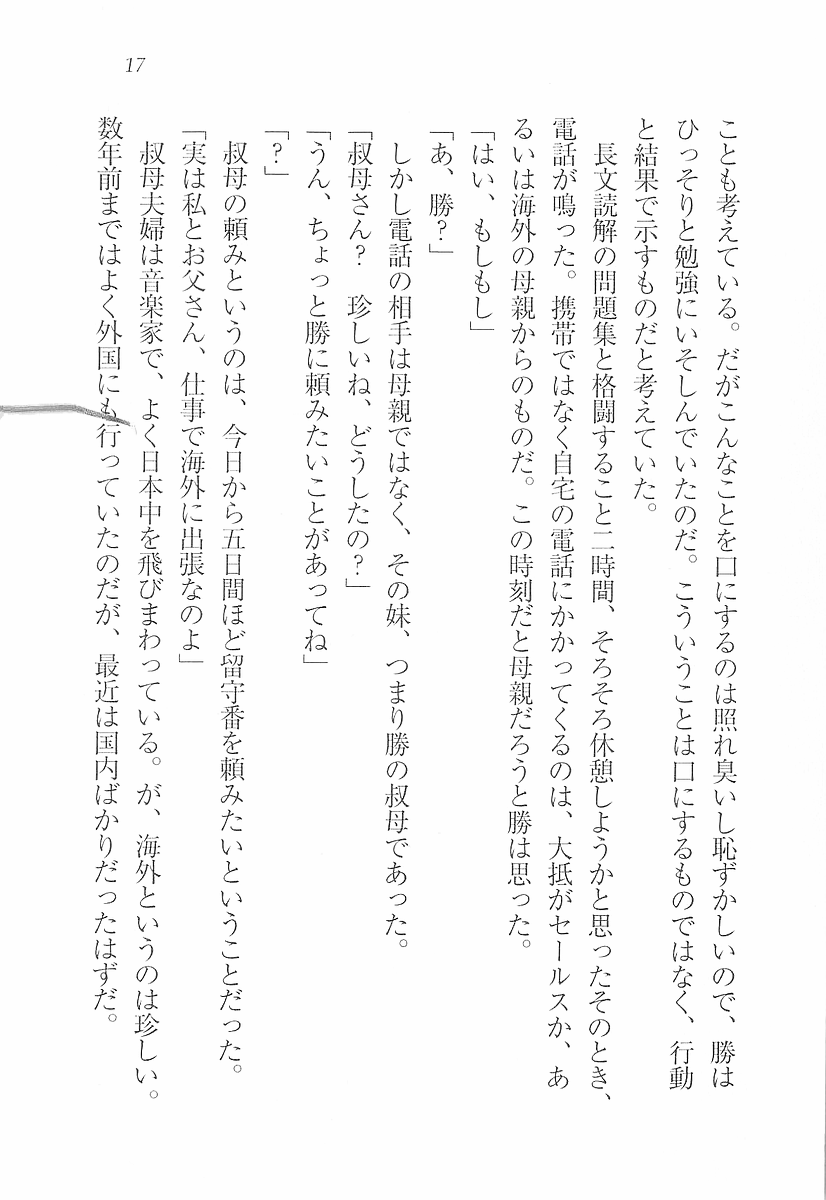 17
ことも考えている。だがこんなことを口にするのは照れ臭いし恥ずかしいので、勝は
ひっそりと勉強にいそしんでいたのだ。こういうことは口にするものではなく、行動
と結果で示すものだと考えていた。
長文読解の問題集と格闘すること二時間、そろそろ休憩しようかと思ったそのとき、
電話が鳴った。携帯ではなく自宅の電話にかかってくるのは、大抵がセールスか、あ
るいは海外の母親からのものだ。この時刻だと母親だろうと勝は思った。
「はい、もしもし」
「あ、勝？」
しかし電話の相手は母親ではなく、その妹、つまり勝の叔母であった。
「叔母さん？　珍しいね、どうしたの？」
「うん、ちょっと勝に頼みたいことがあってね」
「？」
叔母の頼みというのは、今日から五日間ほど留守番を頼みたいということだった。
「実は私とお父さん、仕事で海外に出張なのよ」
叔母夫婦は音楽家で、よく日本中を飛びまわっている。が、海外というのは珍しい。
数年前まではよく外国にも行っていたのだが、最近は国内ばかりだったはずだ。